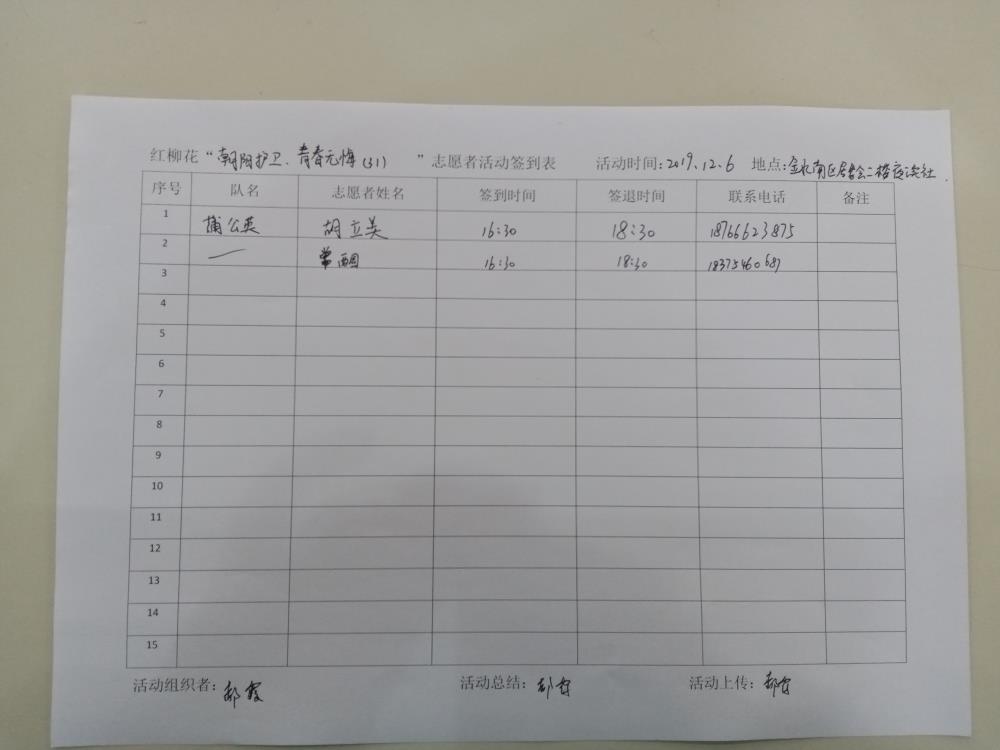 红柳花“朝阳护卫、青春无悔(31) ”志愿者活动签到表 活动时间:2019.12.6 地点:金水南区居委会二楼
序号 队名 志愿者姓名 签到时间 签退时间 联系电话 备注
1 蒲公英 胡立美 16:30 18:30 18766623875
2 — 16:30 18:30 18375460687
3
4
5
6
7
8
9
10
11
12
13
14
15
活动组织者:郝霞 活动总结:郝霞 活动上传:郝霞